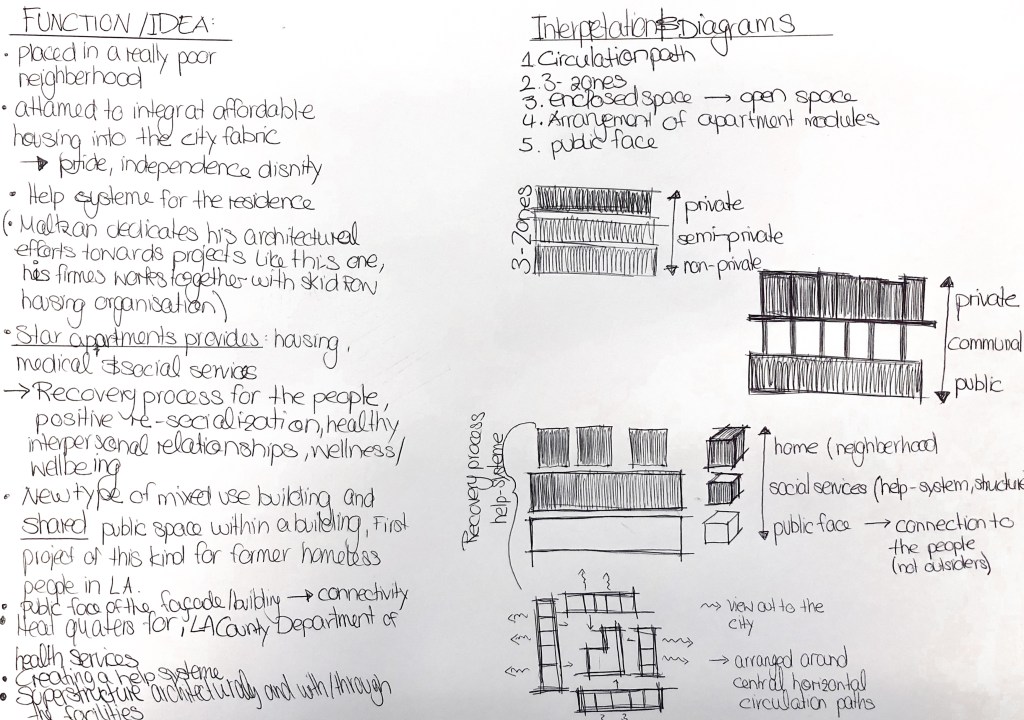 FUNCTION/IDEA:
• placed in a really poor
neighborhood
• attamed to integrat affordable
housing into the city fabric
→ pride, independence disnity
• Help systeme for the residence
(• Maltzan dedicates his architectural
efforts towards projects like this one,
his firmes works together with skid row
housing organisation)
• Star apartments provides: housing,
medical & social services
→ Recovery process for the people,
positive re-socialization, healthy
interpersonal relationships, wellness/
wellbeing
• New type of mixed use building and
shared public space within a building, First
project of this kind for former homeless
people in LA.
• Public face of the façade/building → connectivity
• Head quaters for, LA County Department of
health services
• Creating a help systeme
• Superstructure architecturaly and with/through
the facilities
Interpetation & Diagrams
1. Circulation path
2. 3-zones
3. enclosed space → open space
4. Arrangement of apartment modules
5. public face
3-Zones
private
semi-private
non-private
private
communal
public
Recovery process
help-systeme
home (neighborhood
social services (help-system, structure
public face → connection to
the people
(not outsiders)
view out to the
city
→ arranged around
central horizontal
circulation paths